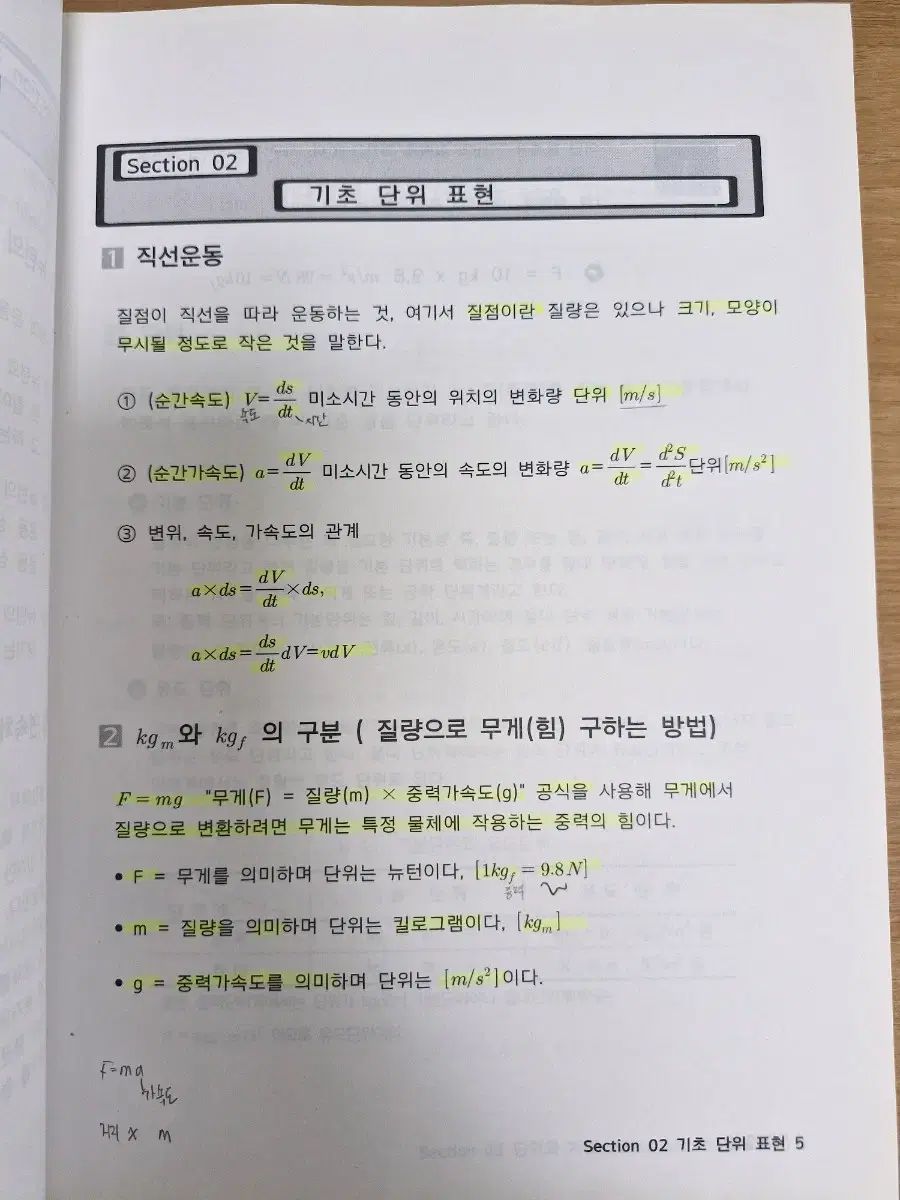 Section 02
기초 단위 표현
1 직선운동
질점이 직선을 따라 운동하는 것, 여기서 질점이란 질량은 있으나 크기, 모양이
무시될 정도로 작은 것을 말한다.
① (순간속도) V=ds/dt 미소시간 동안의 위치의 변화량 단위 [m/s]
속도 시간
② (순간가속도) a=dV/dt 미소시간 동안의 속도의 변화량 a=dV/dt=d²S/d²t 단위[m/s²]
③ 변위, 속도, 가속도의 관계
a×ds=dV/dt×ds,
a×ds=ds/dt dV=vdV
2 kg_m와 kg_f 의 구분 ( 질량으로 무게(힘) 구하는 방법)
F=mg "무게(F) = 질량(m) × 중력가속도(g)" 공식을 사용해 무게에서
질량으로 변환하려면 무게는 특정 물체에 작용하는 중력의 힘이다.
• F = 무게를 의미하며 단위는 뉴턴이다, [1kg_f = 9.8N]
중력
• m = 질량을 의미하며 단위는 킬로그램이다, [kg_m]
• g = 중력가속도를 의미하며 단위는 [m/s²]이다.
F=ma
가속도
거리 x m
Section 02 기초 단위 표현 5